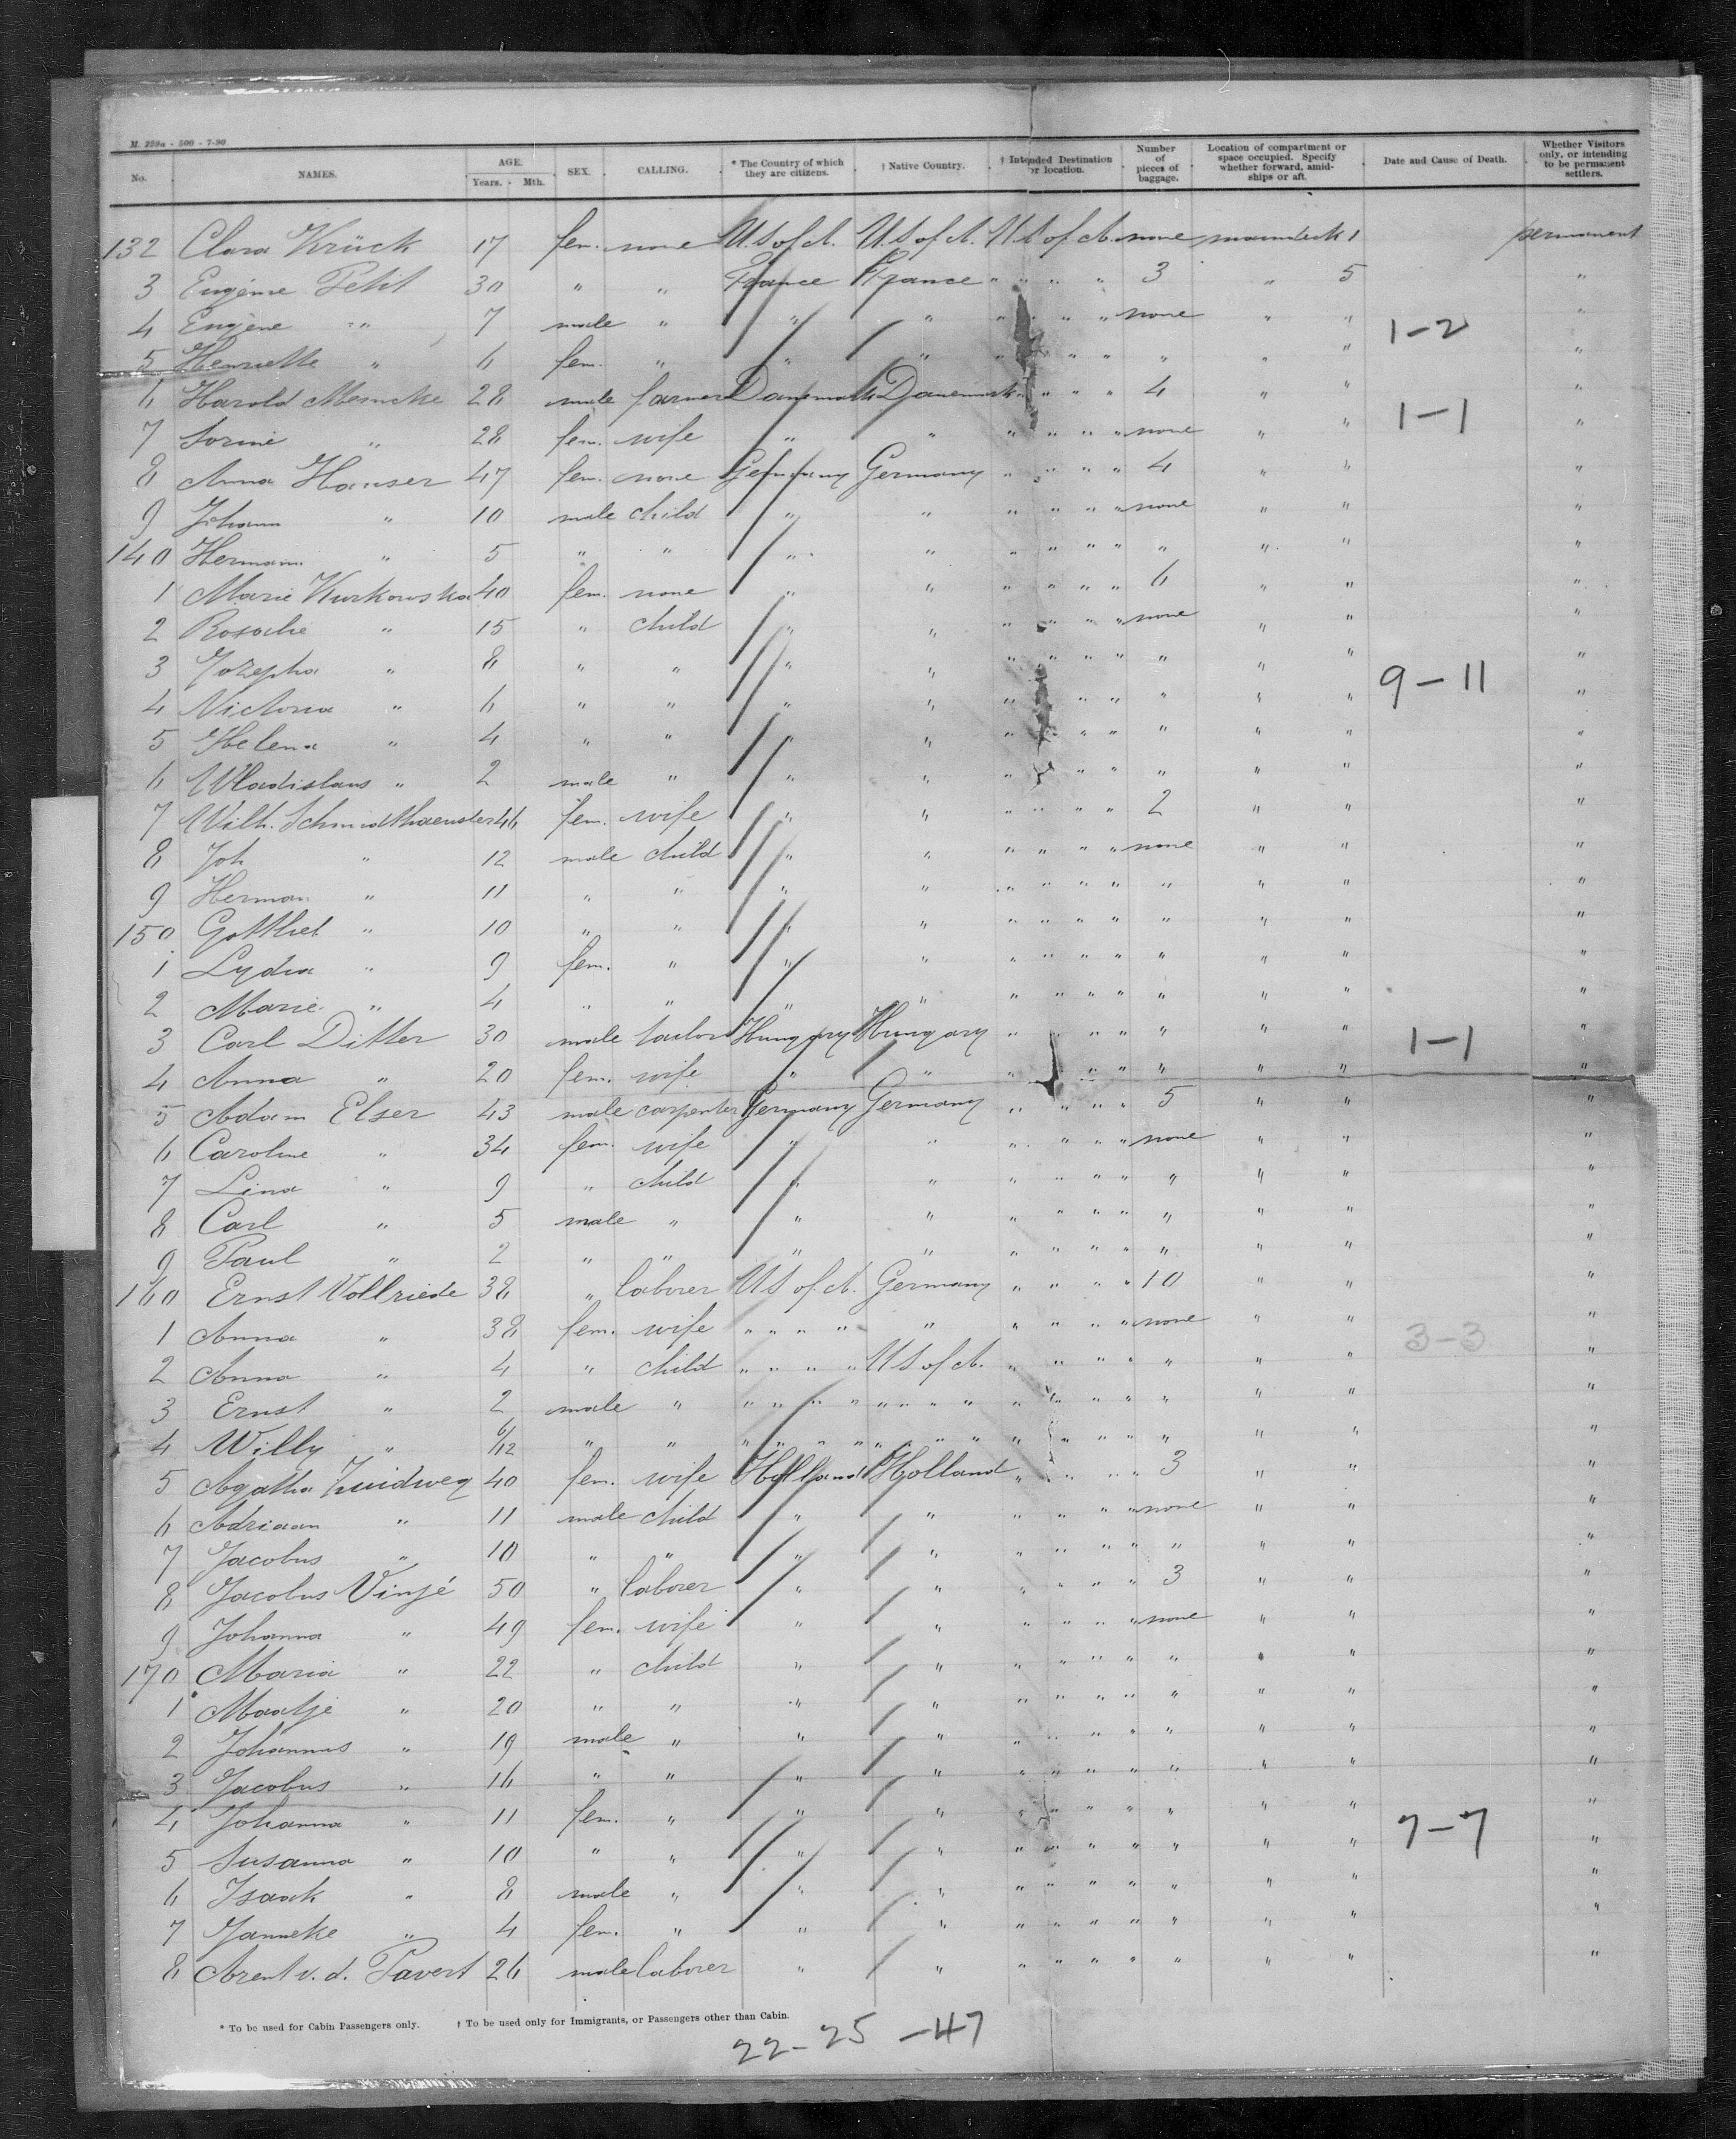 M. 259a - 500 - 7-90
No. NAMES. AGE. Years. - Mth. SEX. CALLING. * The Country of which they are citizens. † Native Country. † Intended Destination or location. Number of pieces of baggage. Location of compartment or space occupied. Specify whether forward, amid-ships or aft. Date and Cause of Death. Whether Visitors only, or intending to be permanent settlers.
132 Clara Krück 17 fem. none U.S of A. U.S of A. U.S of A. none maindeck 1 permanent
3 Eugénie Petit 30 " " France France " " " " 3 " 5 "
4 Eugène " 7 male " " " " " " " none " " "
1-2
5 Henriette " 6 fem. " " " " " " " " " " "
6 Harold Mencke 28 male farmer Danemark Danemark " " " " 4 " " "
1-1
7 Sorine " 28 fem. wife " " " " " " none " " "
8 Anna Hauser 47 fem. none Germany Germany " " " " 4 " " "
9 Johann " 10 male child " " " " " " none " " "
140 Hermann " 5 " " " " " " " " " " " "
1 Marie Kurkowska 40 fem. none " " " " " " 6 " " "
2 Rosalie " 15 " child " " " " " " none " " "
3 Jozepha " 8 " " " " " " " " " " " "
9-11
4 Victoria " 6 " " " " " " " " " " " "
5 Helena " 4 " " " " " " " " " " " "
6 Wladislaus " 2 male " " " " " " " " " " "
7 Wilh. Schmidthaensler 46 fem. wife " " " " " " 2 " " "
8 Joh " 12 male child " " " " " " none " " "
9 Herman " 11 " " " " " " " " " " " "
150 Gottlieb " 10 " " " " " " " " " " " "
1 Lydia " 9 fem. " " " " " " " " " " "
2 Marie " 4 " " " " " " " " " " " "
3 Carl Ditter 30 male tailor Hungary Hungary " " " " " " " "
1-1
4 Anna " 20 fem. wife " " " " " " " " " "
5 Adam Elser 43 male carpenter Germany Germany " " " " 5 " " "
6 Caroline " 34 fem. wife " " " " " " none " " "
7 Lina " 9 " child " " " " " " " " " "
8 Carl " 5 male " " " " " " " " " " "
9 Paul " 2 " " " " " " " " " " " "
160 Ernst Vollriede 38 " laborer U S of A. Germany " " " " 10 " " "
1 Anna " 38 fem. wife " " " " " " " " " none " " "
3-3
2 Anna " 4 " child " " " " U S of A. " " " " " " " "
3 Ernst " 2 male " " " " " " " " " " " " " " " " "
4 Willy " 6/12 " " " " " " " " " " " " " " " " " "
5 Agatha Zuidweg 40 fem. wife Holland Holland " " " " 3 " " "
6 Adriaan " 11 male child " " " " " " none " " "
7 Jacobus " 10 " " " " " " " " " " " "
8 Jacobus Vinjé 50 " laborer " " " " " " 3 " " "
9 Johanna " 49 fem. wife " " " " " " none " " "
170 Maria " 22 " child " " " " " " " " " "
1 Maatje " 20 " " " " " " " " " " " "
2 Johannus " 19 male " " " " " " " " " " "
3 Jacobus " 16 " " " " " " " " " " " "
4 Johanna " 11 fem. " " " " " " " " " " "
7-7
5 Susanna " 10 " " " " " " " " " " " "
6 Isaak " 8 male " " " " " " " " " " "
7 Janneke " 4 fem. " " " " " " " " " " "
8 Arent v. d. Pavert 26 male laborer " " " " " " " " " "
* To be used for Cabin Passengers only. † To be used only for Immigrants, or Passengers other than Cabin.
22-25-47